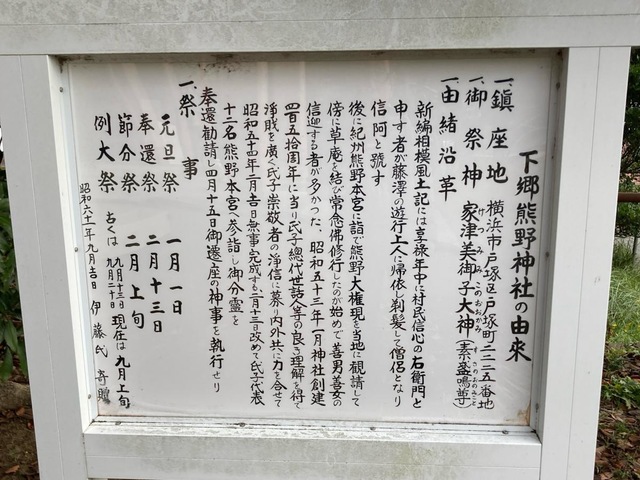 下郷熊野神社の由来
一、鎮座地 横浜市戸塚区戸塚町二二五番地
一、御祭神 家津美御子大神(素盞鳴尊)
けつみみこのおおかみ
一、由緒沿革
新編相模風土記には享禄年中に村民信心の右衛門と
申す者が藤澤の遊行上人に帰依し剃髪して僧侶となり
信阿と號す
後に紀州熊野本宮に詣で熊野大権現を当地に観請して
傍に草庵を結び常念佛修行したのが始めで善男善女の
信迎する者が多かつた、昭和五十三年一月神社創建
四百五拾周年に当り氏子總代世話人等の良き理解を得て
淨財を廣く氏子崇敬者の淨信に募り内外共に力を合せて
昭和五十四年二月吉日無事完成する二月十三日改めて氏子代表
十二名熊野本宮へ参詣し御分霊を
奉還勧請し四月十五日御遷座の神事を執行せり
一、祭事
元旦祭 一月一日
奉還祭 二月十三日
節分祭 二月上旬
例大祭 古くは 九月十三日 九月二十日 現在は 九月上旬
昭和六十一年九月吉日 伊藤氏 寄贈